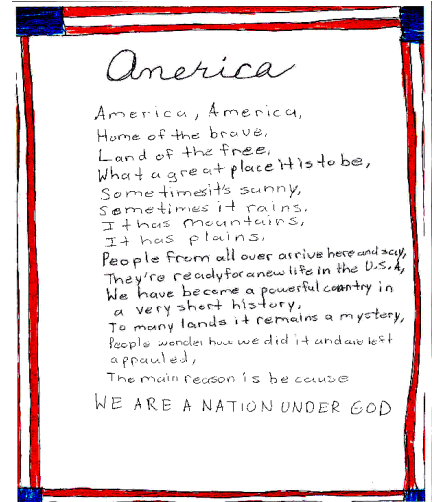 America
America, America,
Home of the brave,
Land of the free,
What a great place it is to be,
Sometimes it's sunny,
Sometimes it rains,
It has mountains,
It has plains,
People from all over arrive here and say,
They're ready for a new life in the U.S.A,
We have become a powerful country in
a very short history,
To many lands it remains a mystery,
People wonder how we did it and are left
appauled,
The main reason is be cause
WE ARE A NATION UNDER GOD